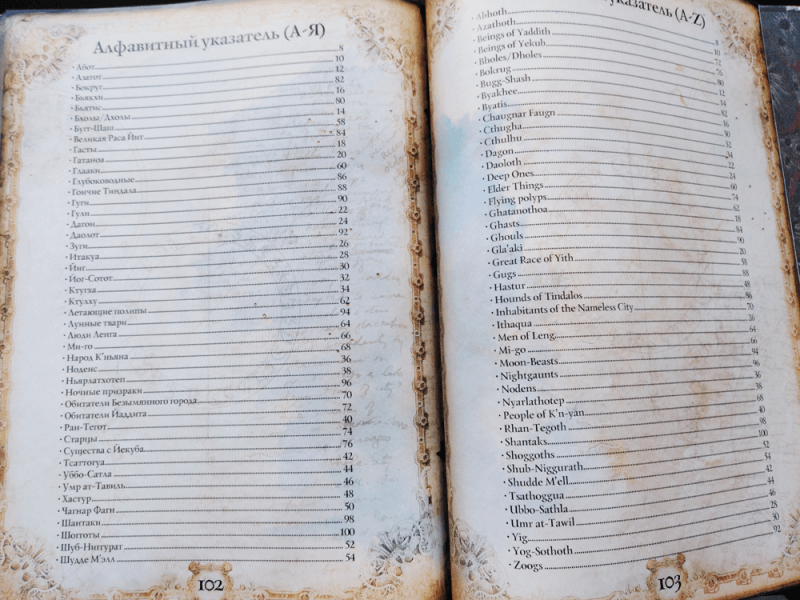 Алфавитный указатель (А-Я)
· Абот 8
· Азатот 10
· Бокруг 12
· Бьякхи 82
· Бьятис 16
· Бхолы/Дхолы 80
· Бугг-Шаш 14
· Великая Раса Йит 58
· Гасты 84
· Гатаноа 18
· Глааки 20
· Глубоководные 60
· Гончие Тиндала 86
· Гуги 88
· Гули 90
· Дагон 22
· Даолот 24
· Зуги 92
· Итакуа 26
· Йиг 28
· Йог-Сотот 30
· Ктугха 32
· Ктулху 34
· Летающие полипы 62
· Лунные твари 94
· Люди Ленга 64
· Ми-го 66
· Народ К'ньяна 68
· Ноденс 36
· Ньярлатхотеп 38
· Ночные призраки 96
· Обитатели Безымянного города 70
· Обитатели Йаддита 72
· Ран-Тегот 40
· Старцы 74
· Существа с Йекуба 76
· Тсаттогуа 42
· Уббо-Сатла 44
· Умр ат-Тавиль 46
· Хастур 48
· Чагнар Фагн 50
· Шантаки 98
· Шогготы 100
· Шуб-Ниггурат 52
· Шудде М'элл 54
102
указатель (A-Z)
· Abhoth 8
· Azathoth 10
· Beings of Yaddith 72
· Beings of Yekub 76
· Bholes/Dholes 80
· Bokrug 12
· Bugg-Shash 14
· Byakhee 82
· Byatis 16
· Chaugnar Faugn 50
· Cthugha 32
· Cthulhu 34
· Dagon 22
· Daoloth 24
· Deep Ones 60
· Elder Things 74
· Flying polyps 62
· Ghatanothoa 18
· Ghasts 84
· Ghouls 90
· Gla'aki 20
· Great Race of Yith 58
· Gugs 88
· Hastur 48
· Hounds of Tindalos 86
· Inhabitants of the Nameless City 70
· Ithaqua 26
· Men of Leng 64
· Mi-go 66
· Moon-Beasts 94
· Nightgaunts 96
· Nodens 36
· Nyarlathotep 38
· People of K'n-yan 68
· Rhan-Tegoth 40
· Shantaks 98
· Shoggoths 100
· Shub-Niggurath 52
· Shudde M'ell 54
· Tsathoggua 42
· Ubbo-Sathla 44
· Umr at-Tawil 46
· Yig 28
· Yog-Sothoth 30
· Zoogs 92
103